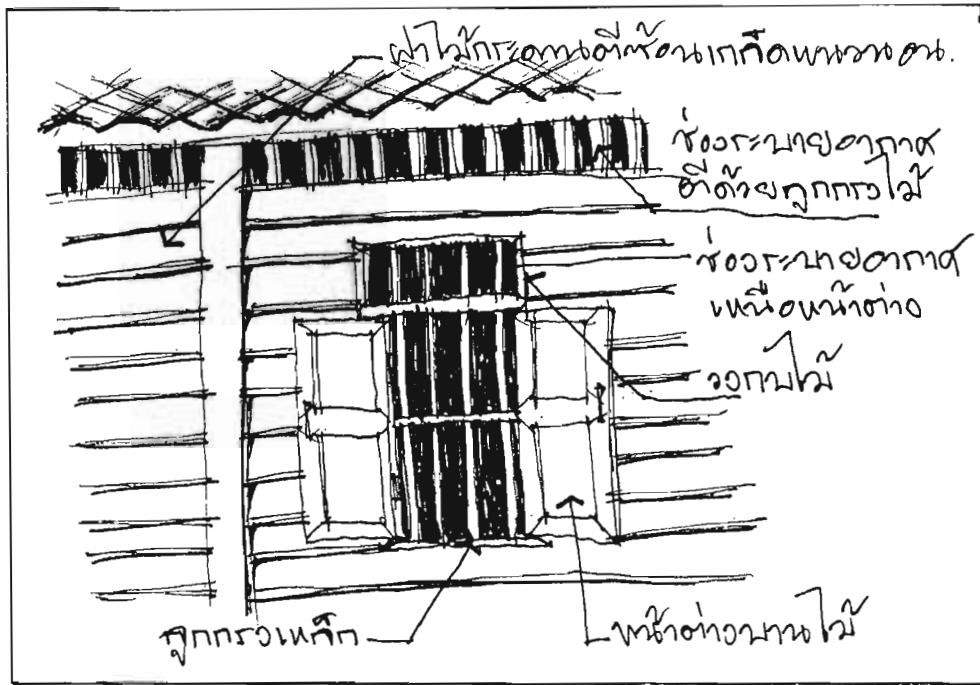 ฝาไม้กระดานตีซ้อนเกล็ดแนวนอน.
ช่องระบายอากาศ
ตีด้วยลูกกรงไม้
ช่องระบายอากาศ
เหนือหน้าต่าง
วงกบไม้
ลูกกรงเหล็ก
หน้าต่างบานไม้